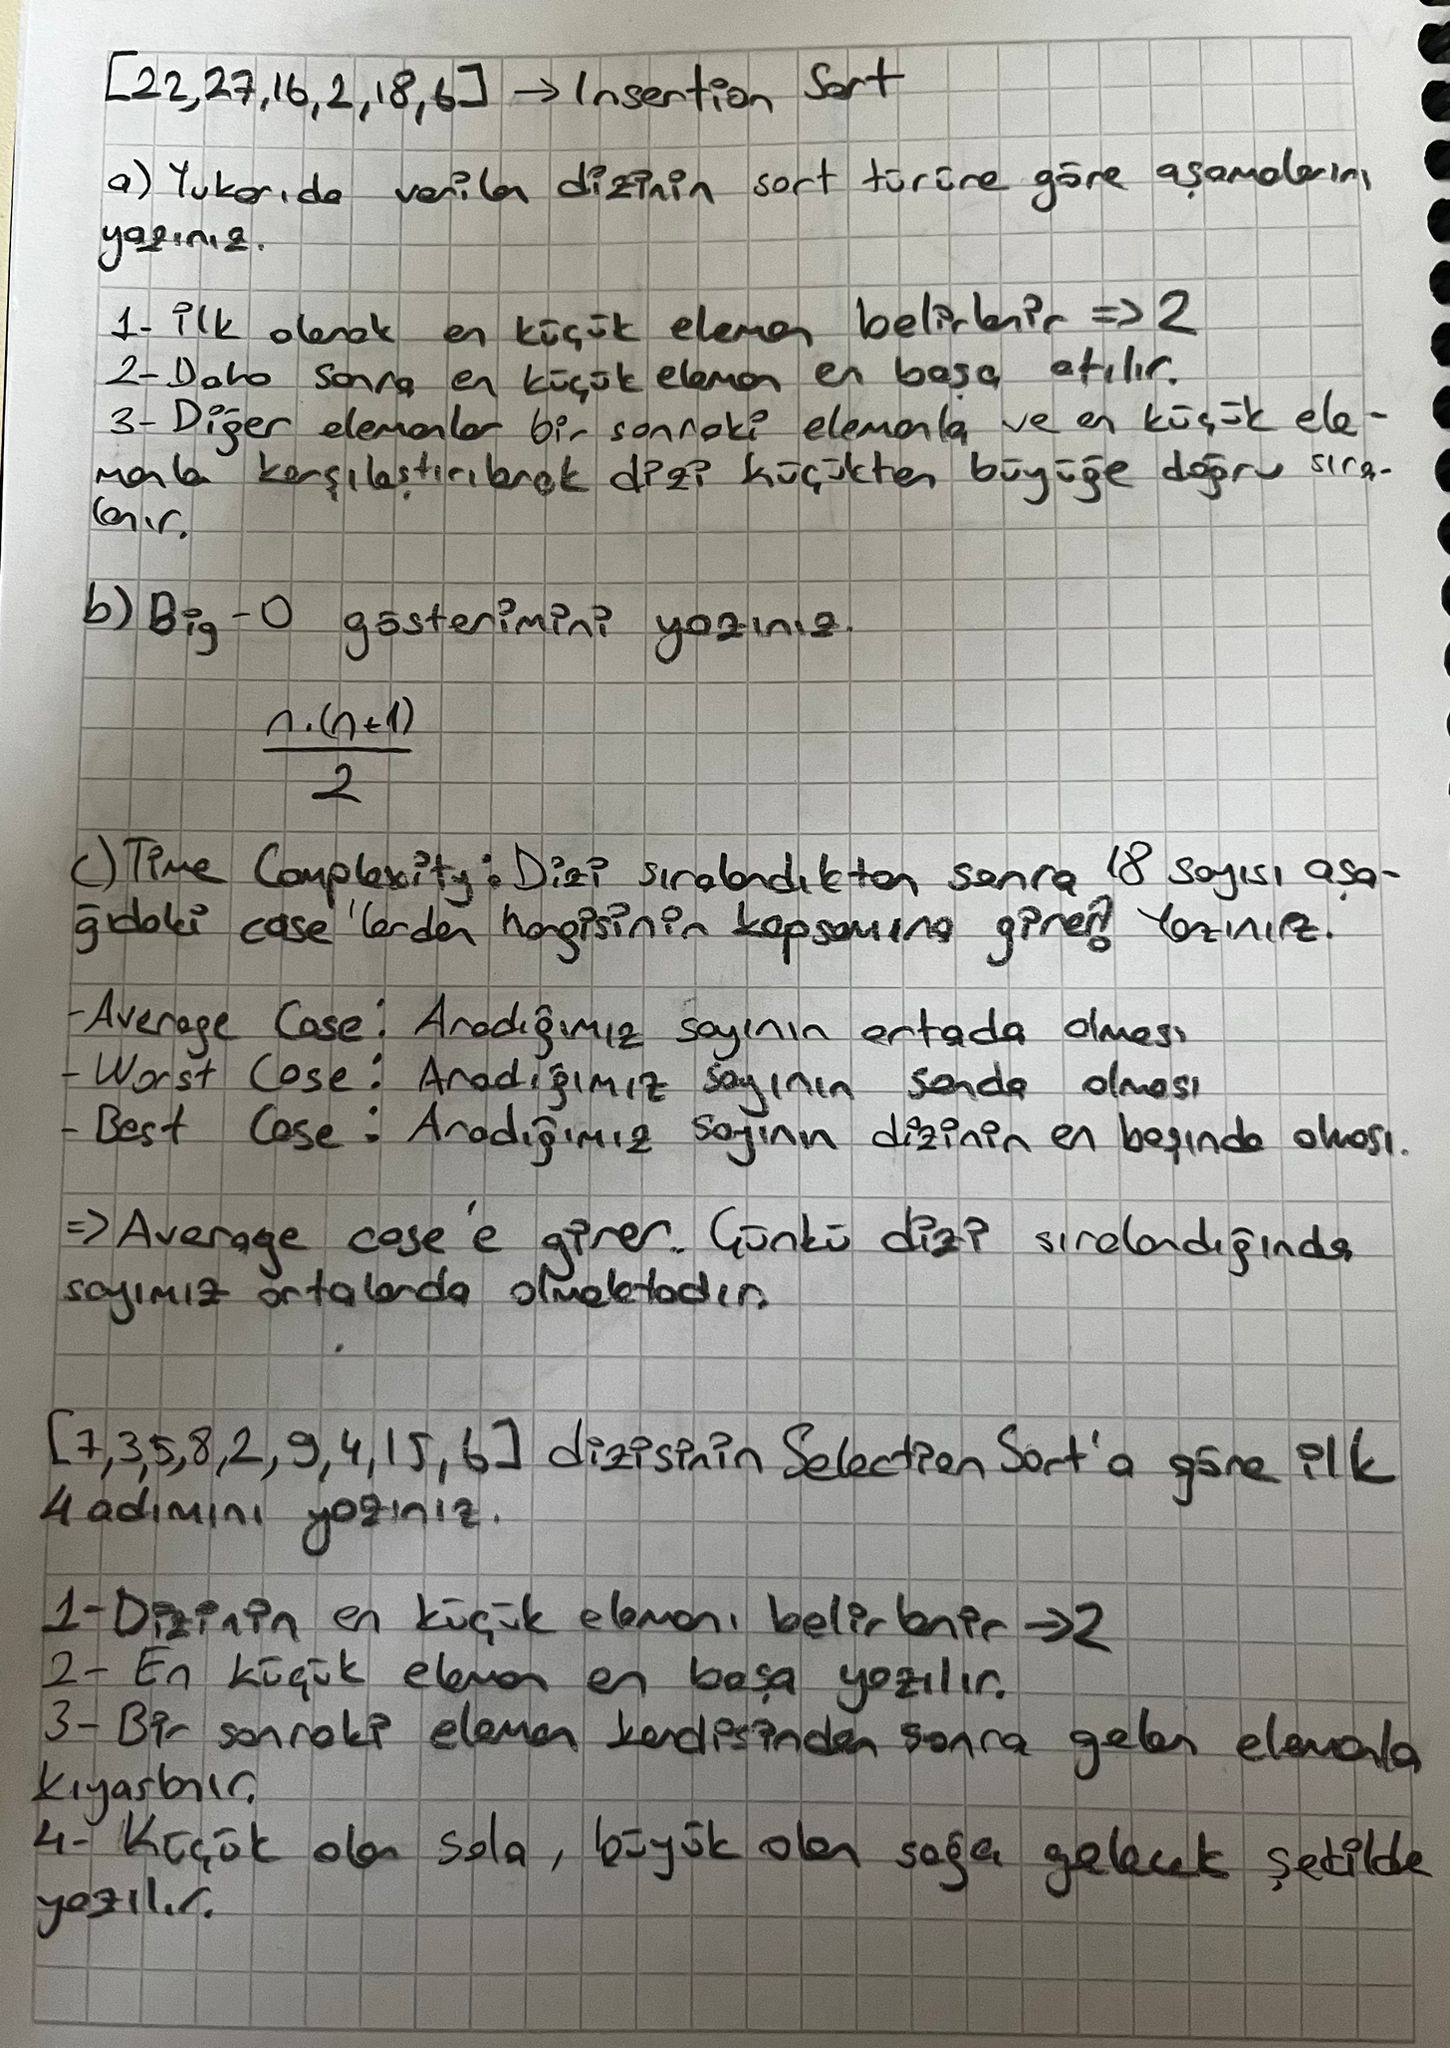 [22,27,16,2,18,6] → Insertion Sort
a) Yukarıda verilen dizinin sort türüne göre aşamalarını
yazınız.
1- İlk olarak en küçük eleman belirlenir => 2
2- Daha sonra en küçük eleman en başa atılır.
3- Diğer elemanlar bir sonraki elemanla ve en küçük ele-
manla karşılaştırılarak dizi küçükten büyüğe doğru sıra-
lanır.
b) Big-O gösterimini yazınız.
n.(n+1)
2
c) Time Complexity: Dizi sıralandıktan sonra 18 sayısı aşa-
ğıdaki case'lerden hangisinin kapsamına girer? Yazınız.
- Average Case: Aradığımız sayının ortada olması
- Worst Case: Aradığımız sayının sonda olması
- Best Case: Aradığımız sayının dizinin en başında olması.
=> Average case'e girer. Çünkü dizi sıralandığında
sayımız ortalarda olmaktadır.
[7,3,5,8,2,9,4,15,6] dizisinin Selection Sort'a göre ilk
4 adımını yazınız.
1- Dizinin en küçük elemanı belirlenir → 2
2- En küçük eleman en başa yazılır.
3- Bir sonraki eleman kendisinden sonra gelen elemanla
kıyaslanır.
4- Küçük olan sola, büyük olan sağa gelecek şekilde
yazılır.